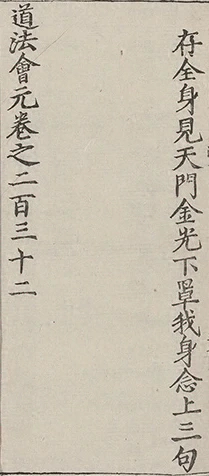 存全身見天門金光下罩我身念上三句
道法會元卷之二百三十二